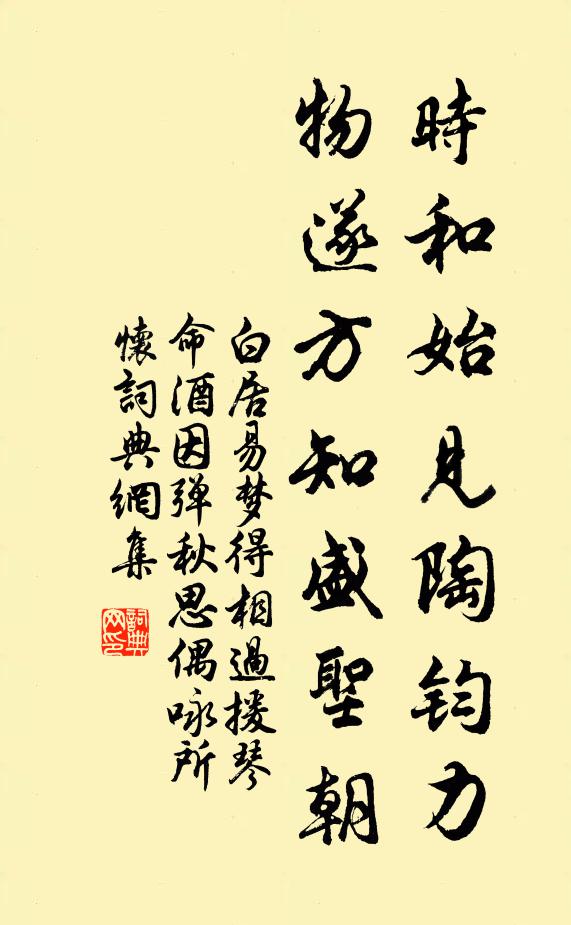 時和始見陶鈞力
物遂方知盛聖朝
白居易梦得相過援琴
命酒因弹秋思偶咏所
懷詞典網集
詞典
网印